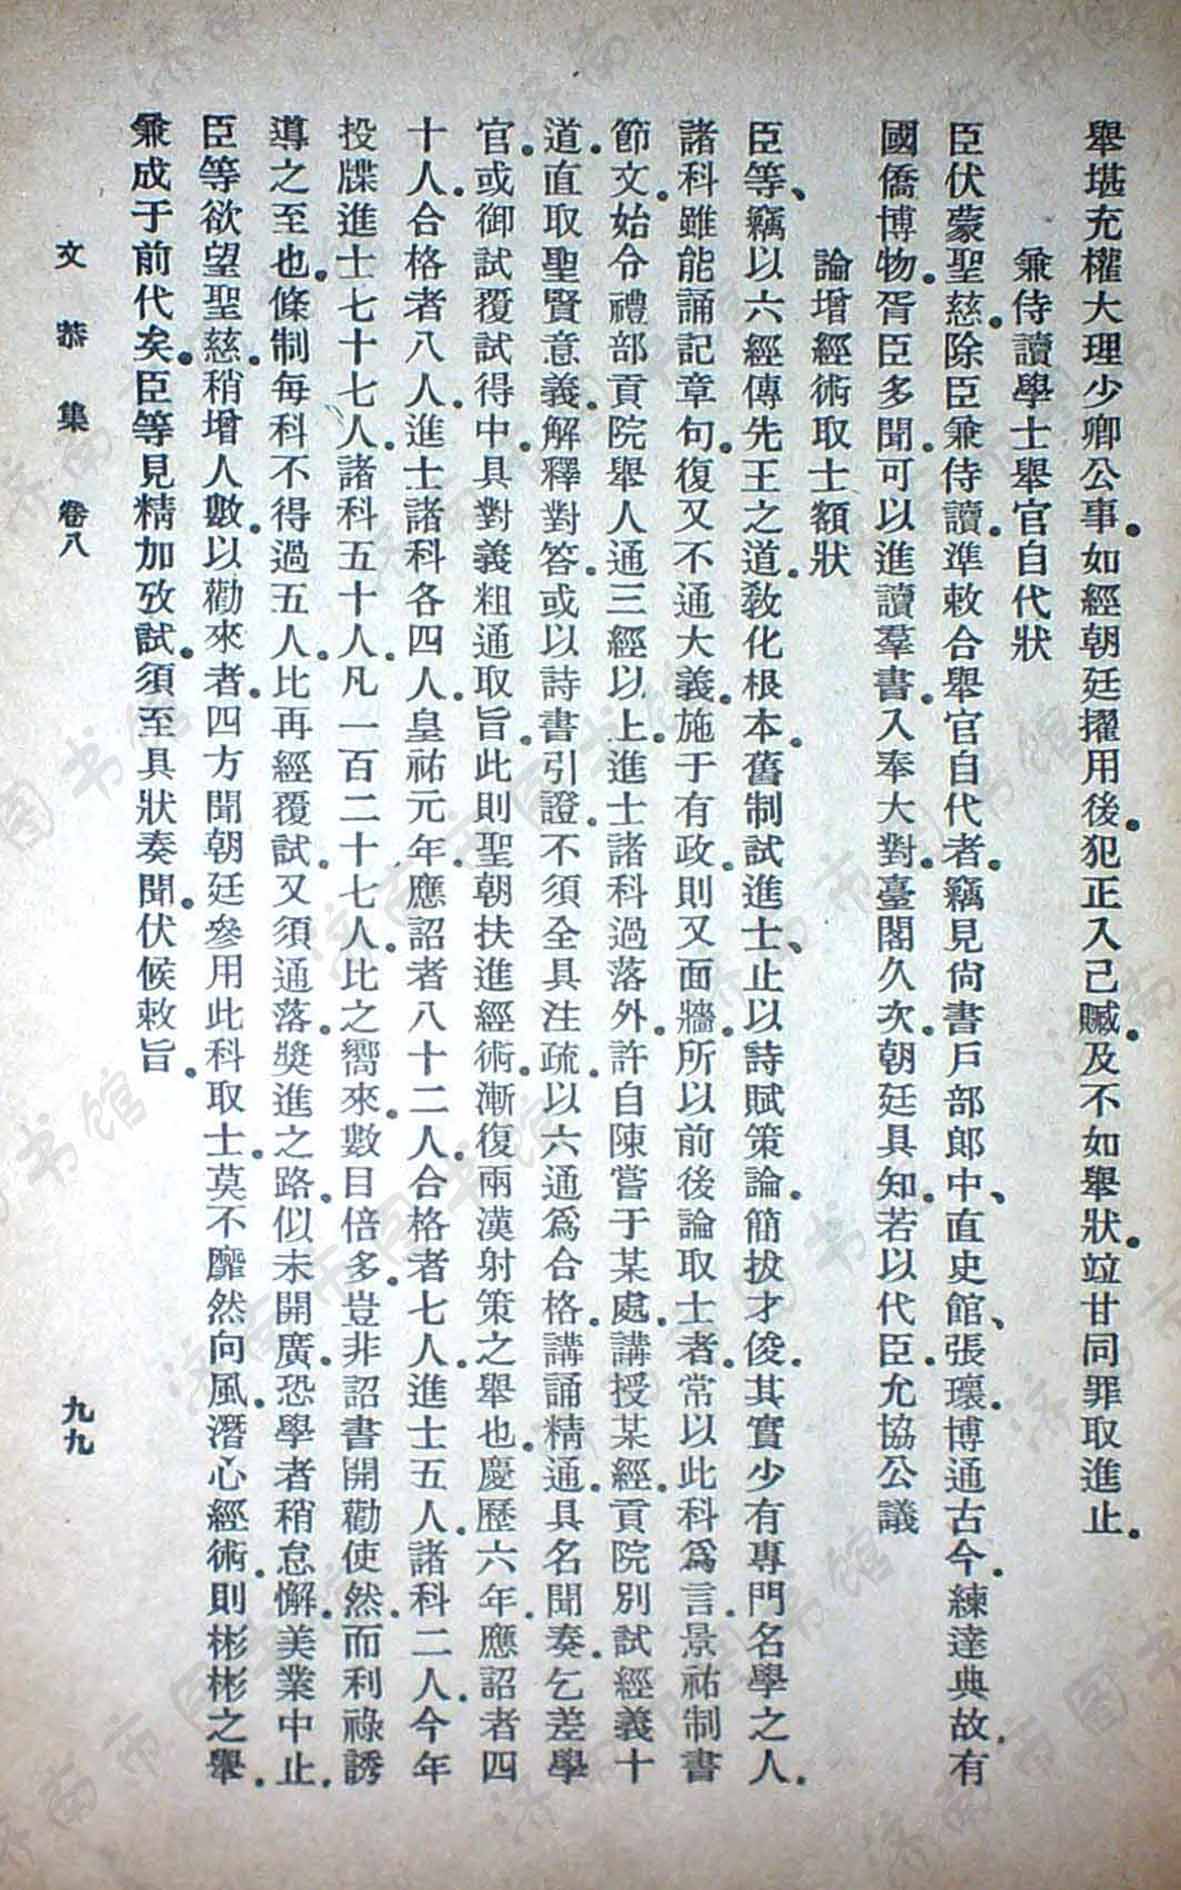 舉堪充權大理少卿公事。如經朝廷擢用後。犯正入己贓。及不如舉狀。竝甘同罪取進止。
兼侍讀學士舉官自代狀
臣伏蒙聖慈。除臣兼侍讀。準敕合舉官自代者。竊見尙書戶部郎中、直史館、張瓌。博通古今。練達典故。有
國僑博物。胥臣多聞。可以進讀羣書。入奉大對。臺閣久次。朝廷具知。若以代臣。允協公議
論增經術取士額狀
臣等、竊以六經傳先王之道。敎化根本。舊制試進士、止以詩賦策論。簡拔才俊。其實少有專門名學之人。
諸科雖能誦記章句。復又不通大義。施于有政。則又面牆。所以前後論取士者。常以此科爲言。景祐制書
節文。始令禮部貢院舉人通三經以上。進士諸科過落外。許自陳嘗于某處。講授某經。貢院別試經義十
道。直取聖賢意義。解釋對答。或以詩書引證。不須全具注疏。以六通爲合格。講誦精通。具名聞奏。乞差學
官。或御試覆試得中。具對義粗通取旨。此則聖朝扶進經術。漸復兩漢射策之舉也。慶歷六年。應詔者四
十人。合格者八人。進士諸科各四人。皇祐元年。應詔者八十二人。合格者七人。進士五人。諸科二人。今年
投牒進士七十七人。諸科五十人。凡一百二十七人。比之嚮來。數目倍多。豈非詔書開勸使然。而利祿誘
導之至也。條制每科不得過五人。比再經覆試。又須通落。獎進之路。似未開廣。恐學者稍怠懈。美業中止。
臣等欲望聖慈。稍增人數。以勸來者。四方聞朝廷參用此科取士。莫不靡然向風。潛心經術。則彬彬之舉。
兼成于前代矣。臣等見精加攷試。須至具狀奏聞。伏候敕旨。
文恭集 卷八 九九
济南市图书馆